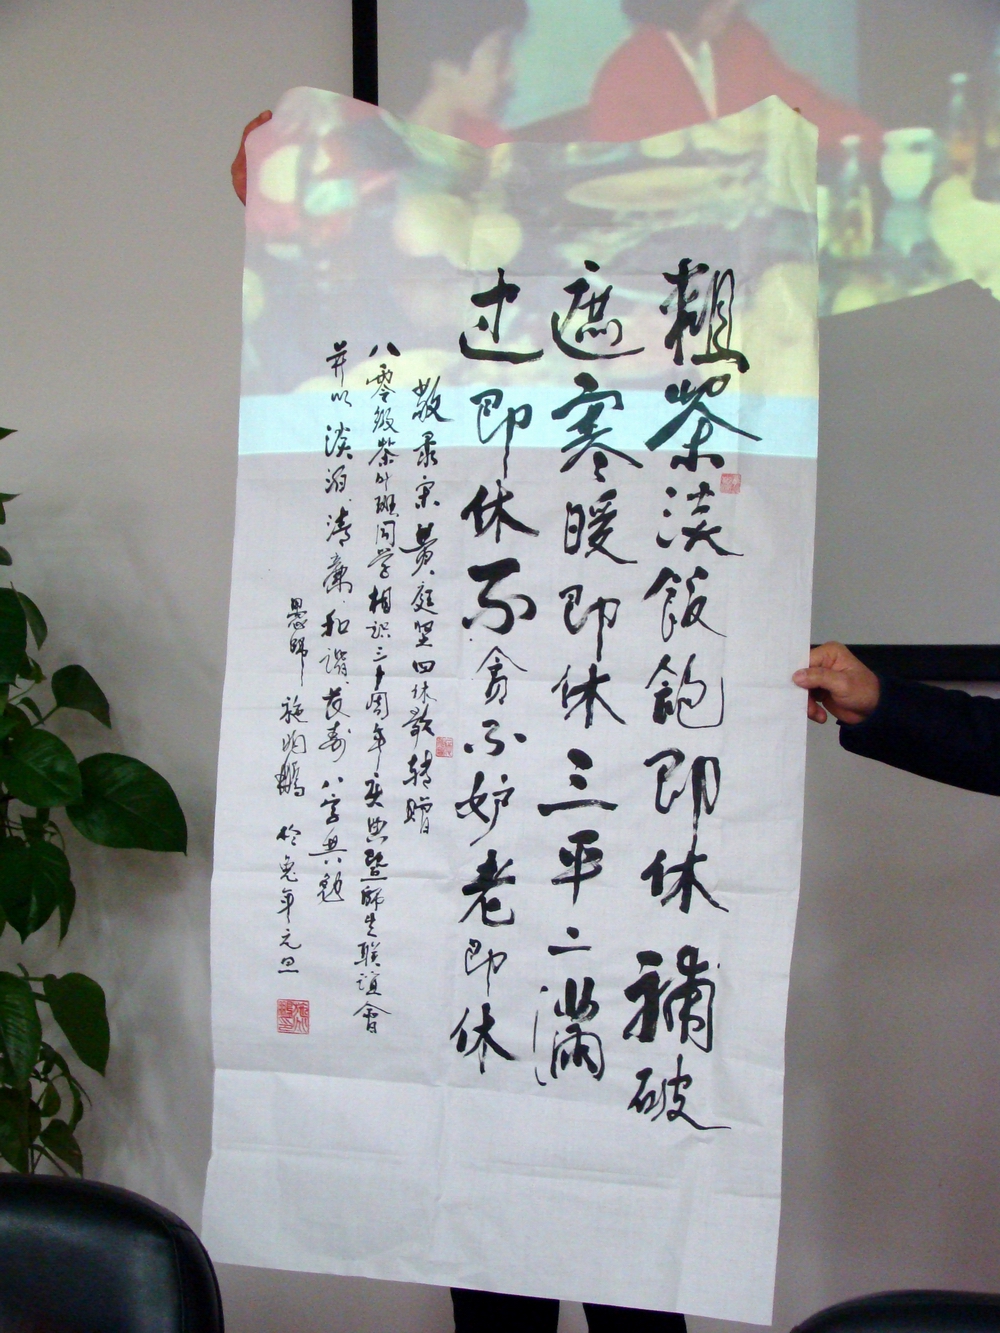 粗茶淡饭饱即休补破
遮寒暖即休三平二满
过即休不贪不妒老即休
敬录宋黄庭坚四休歌转赠
八零级茶叶班同学相识三十周年庆典暨师生联谊会
并以淡泊、清廉、和谐、长寿八字共勉
愚师 施 鹏 于兔年元旦